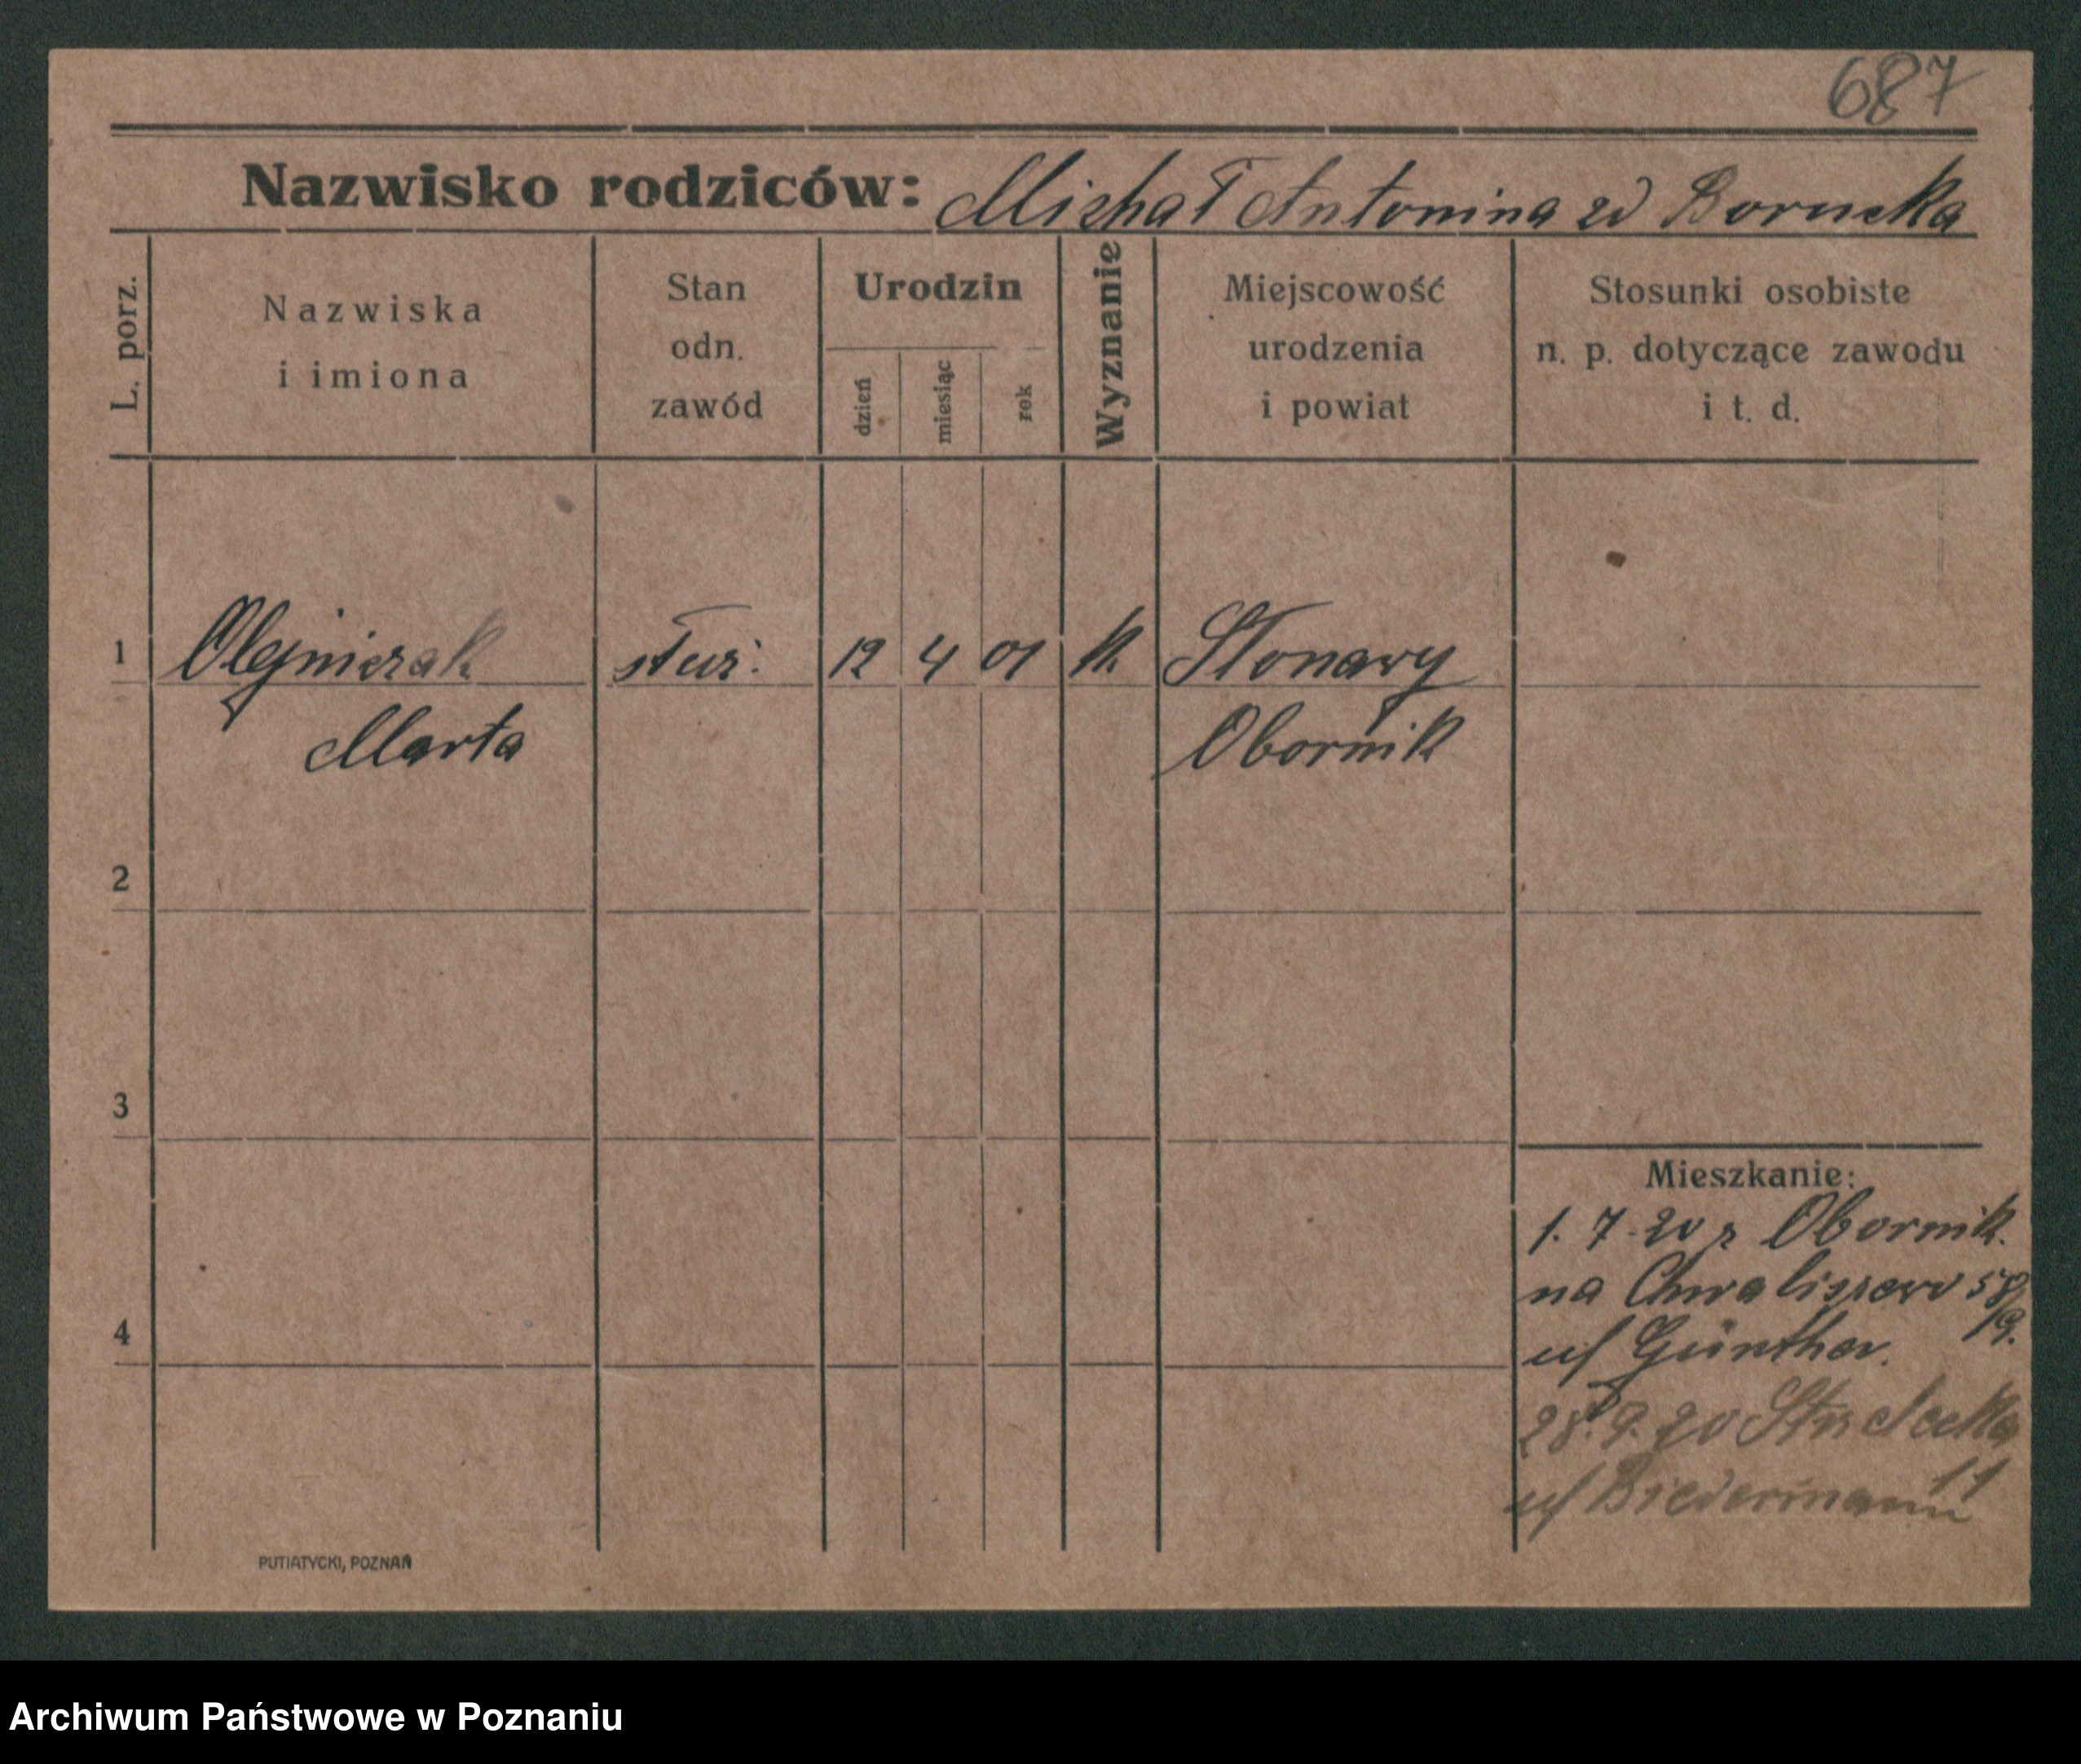 687
Nazwisko rodziców: Michał Antonina zd Borucka
L. porz.
Nazwiska
i imiona
Stan
odn.
zawód
Urodzin
dzień
miesiąc
rok
Wyznanie
Miejscowość
urodzenia
i powiat
Stosunki osobiste
n. p. dotyczące zawodu
i t. d.
1 Olejniczak służ: 12 4 01 k Słonawy
Marta Obornik
2
3
4
Mieszkanie:
1. 7. 20 z Obornik.
na Chwaliszewo 58/9.
u/ Günther.
28. 9. 20 Strzelecka
11
u/ Biedermann
PUTIATYCKI, POZNAŃ
Archiwum Państwowe w Poznaniu